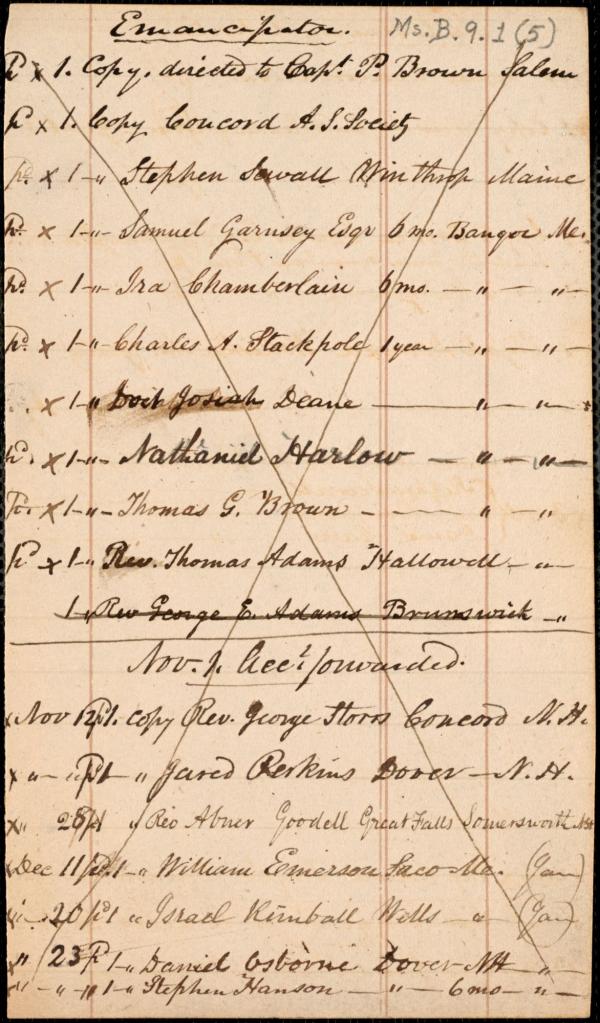 Emancipator. Ms. B. 9. 1 (5)
pd x 1. Copy, directed to Capt P. Brown Salem
pd x 1. Copy Concord A. S. Society
pd x 1 -„ Stephen Sewall Winthrop Maine
pd. x 1 -„- Samuel Garnsey Esqr 6 mo. Bangor Me.
pd. x 1 -„- Ira Chamberlain 6 mo. - „ - „ -
pd. x 1 -„- Charles A. Stackpole 1 year - „ - „ -
x 1 -„ Josiah Deane - „ - „ -
pd. x 1 -„- Nathaniel Harlow - „ - „ -
pd. x 1 -„- Thomas G. Brown - - „ - „
pd x 1 -„ Rev. Thomas Adams Hallowell - „ -
1 „ Rev George E. Adams Brunswick - „
Nov. 1. Acct forwarded.
x Nov 12 pd 1. copy Rev. George Storrs Concord N. H.
x „ - „ pd 1 - „ Jared Perkins Dover - N. H.
x „ 28 pd 1 „ Rev Abner Goodell Great Falls Somersworth NH
x Dec 11 pd. 1 - „ William Emerson Saco Me. (Jan)
x „ - 20 pd 1 „ Israel Kimball Wells - „ (Jan)
x „ 23 pd 1 - „ Daniel Osborne Dover NH - „ -
x „ - „ - „ 1 - „ Stephen Hanson - „ - 6 mo - „ -